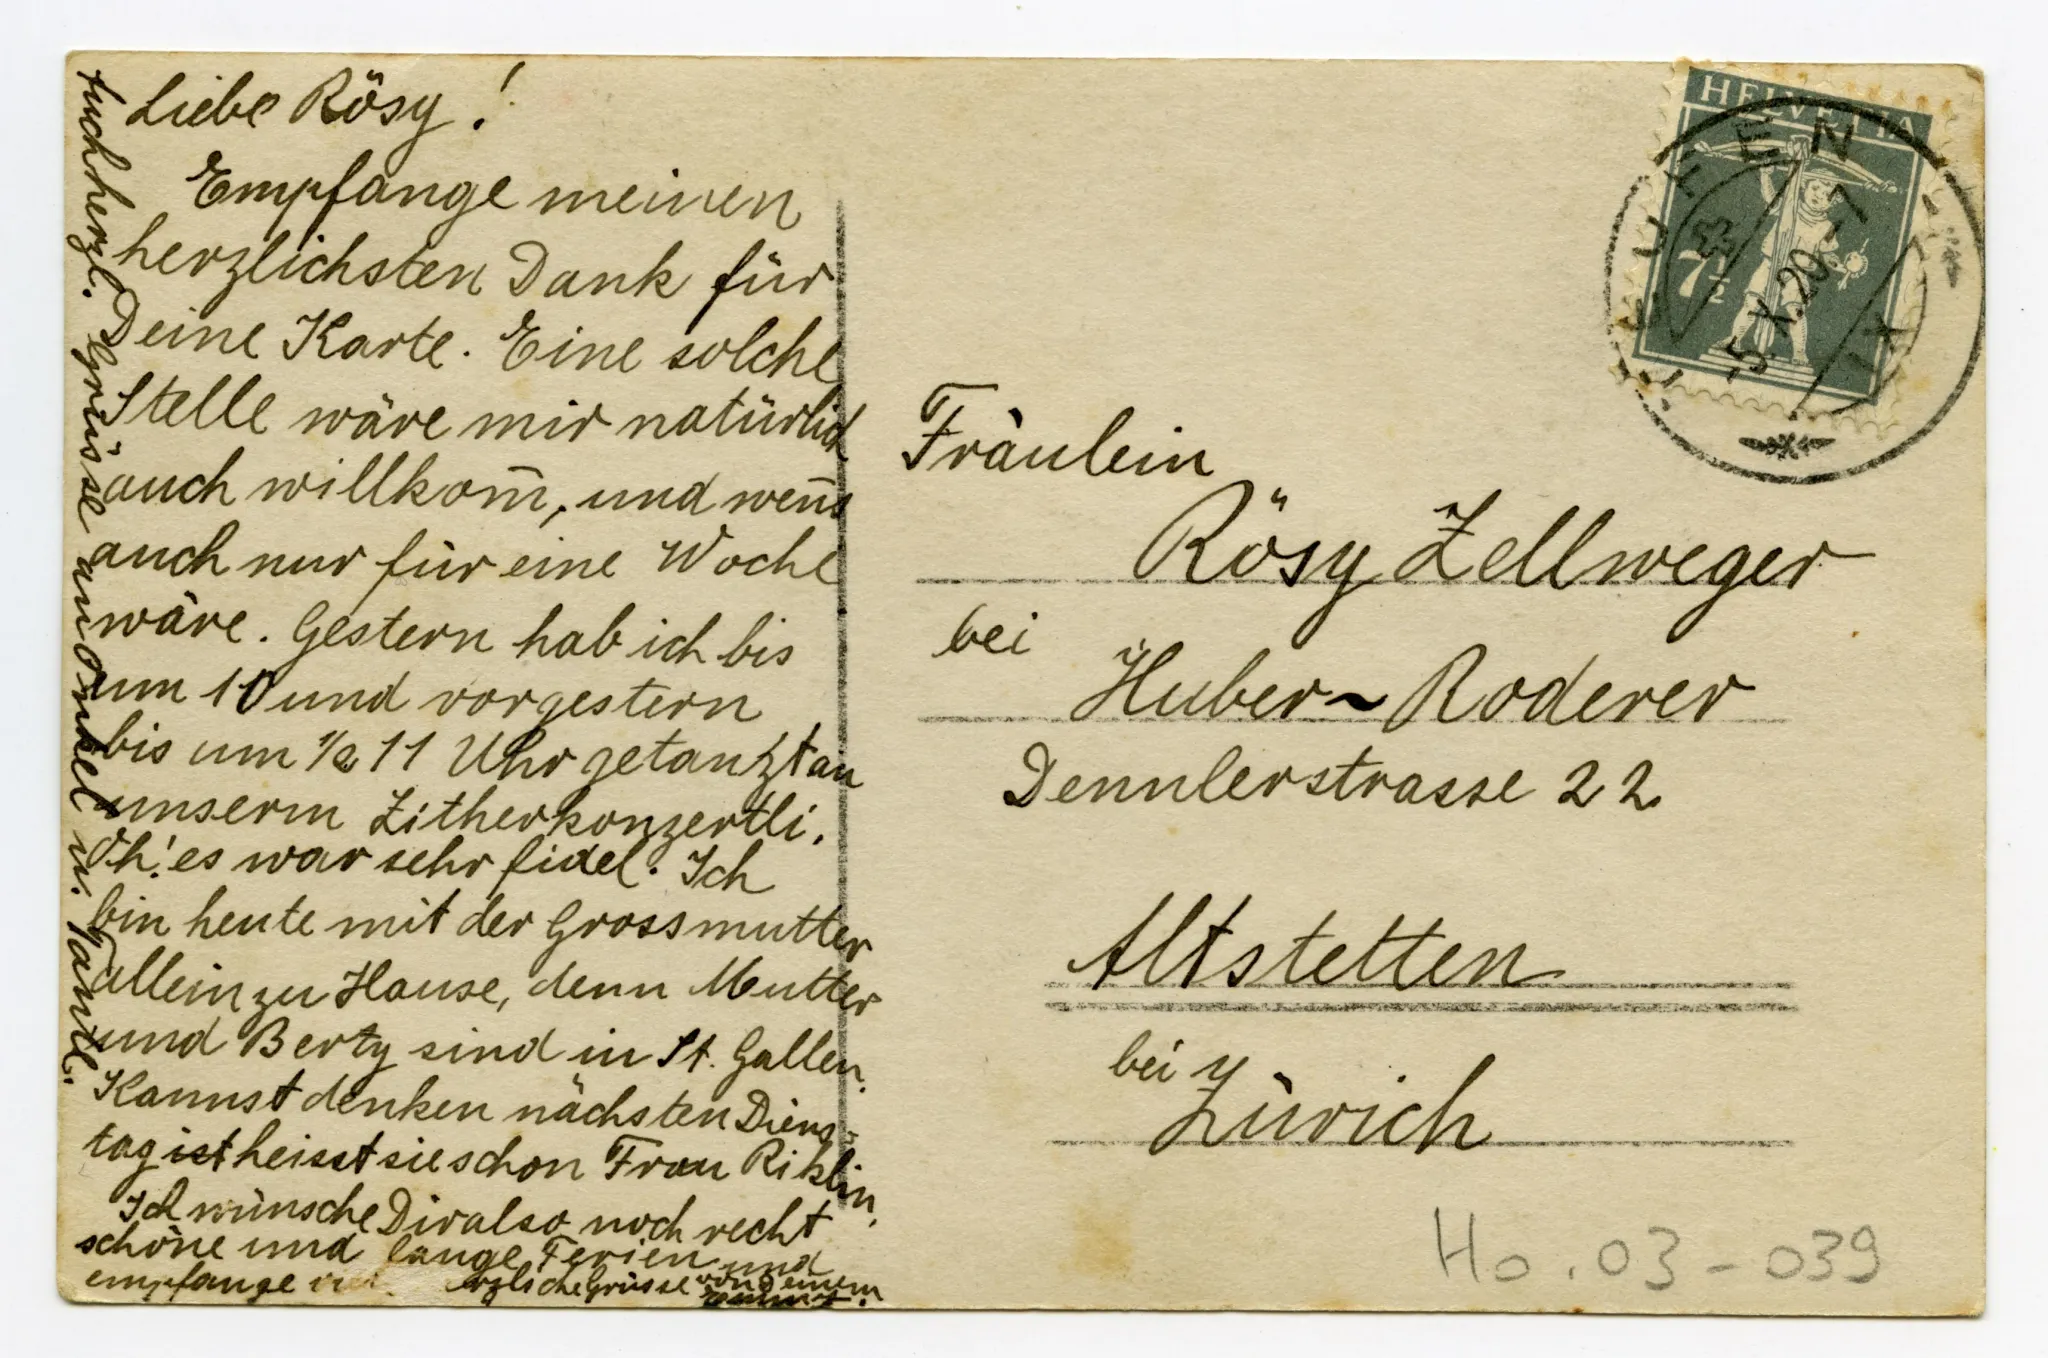 Liebe Rösy!
Empfange meinen
herzlichsten Dank für
Deine Karte. Eine solche
Stelle wäre mir natürlich
auch willkom̄, und wen̄s
auch nur für eine Woche
wäre. Gestern hab ich bis
um 10 und vorgestern
bis um ½ 11 Uhr getanzt an
unserm Zitherkonzertli.
Oh! es war sehr fidel. Ich
bin heute mit der Grossmutter
allein zu Hause, denn Mutter
und Berty sind in St. Gallen.
Kannst denken nächsten Diens-
tag ist heisst sie schon Frau Riklin.
Ich wünsche Dir also noch recht
schöne und lange Ferien und
empfange herzliche Grüsse von deinem
Auch herzl. Grüsse an Onkel u. Tantl.
HELVETIA
7½
TEUFEN
-5.X.20-7
IX
Fräulein
Rösy Zellweger
bei
Huber-Roderer
Dennlerstrasse 22
Altstetten
bei
Zürich
Ho. 03-039